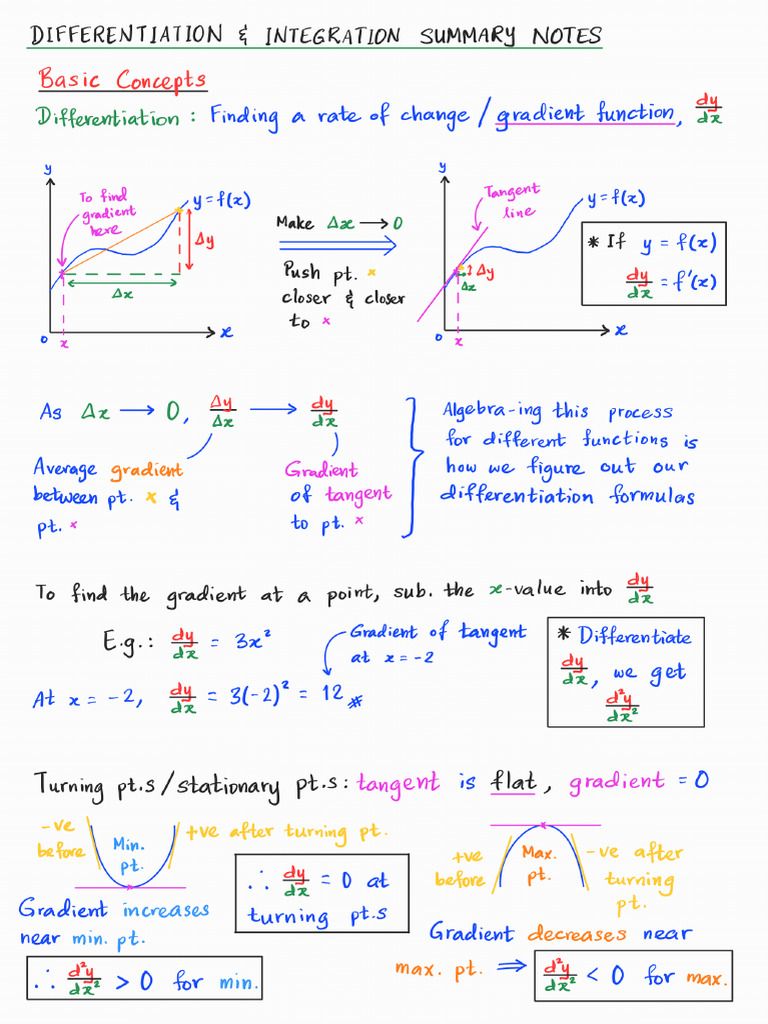 DIFFERENTIATION & INTEGRATION SUMMARY NOTES
Basic Concepts
Differentiation : Finding a rate of change / gradient function, dy/dx
y
To find
gradient
here
y = f(x)
Δy
Δx
0
x
x
Make Δx → 0
Push pt. ×
closer & closer
to ×
y
Tangent
line
y = f(x)
Δy
Δx
0
x
x
* If y = f(x)
dy/dx = f'(x)
As Δx → 0, Δy/Δx → dy/dx
Average gradient
between pt. × &
pt. ×
Gradient
of tangent
to pt. ×
Algebra-ing this process
for different functions is
how we figure out our
differentiation formulas
To find the gradient at a point, sub. the x-value into dy/dx
E.g.: dy/dx = 3x²
Gradient of tangent
at x = -2
At x = -2, dy/dx = 3(-2)² = 12
* Differentiate
dy/dx, we get
d²y/dx²
Turning pt.s / stationary pt.s: tangent is flat, gradient = 0
-ve
before
Min.
pt.
+ve after turning pt.
Gradient increases
near min. pt.
∴ d²y/dx² > 0 for min.
∴ dy/dx = 0 at
turning pt.s
+ve
before
Max.
pt.
-ve after
turning
pt.
Gradient decreases near
max. pt. ⇒ d²y/dx² < 0 for max.